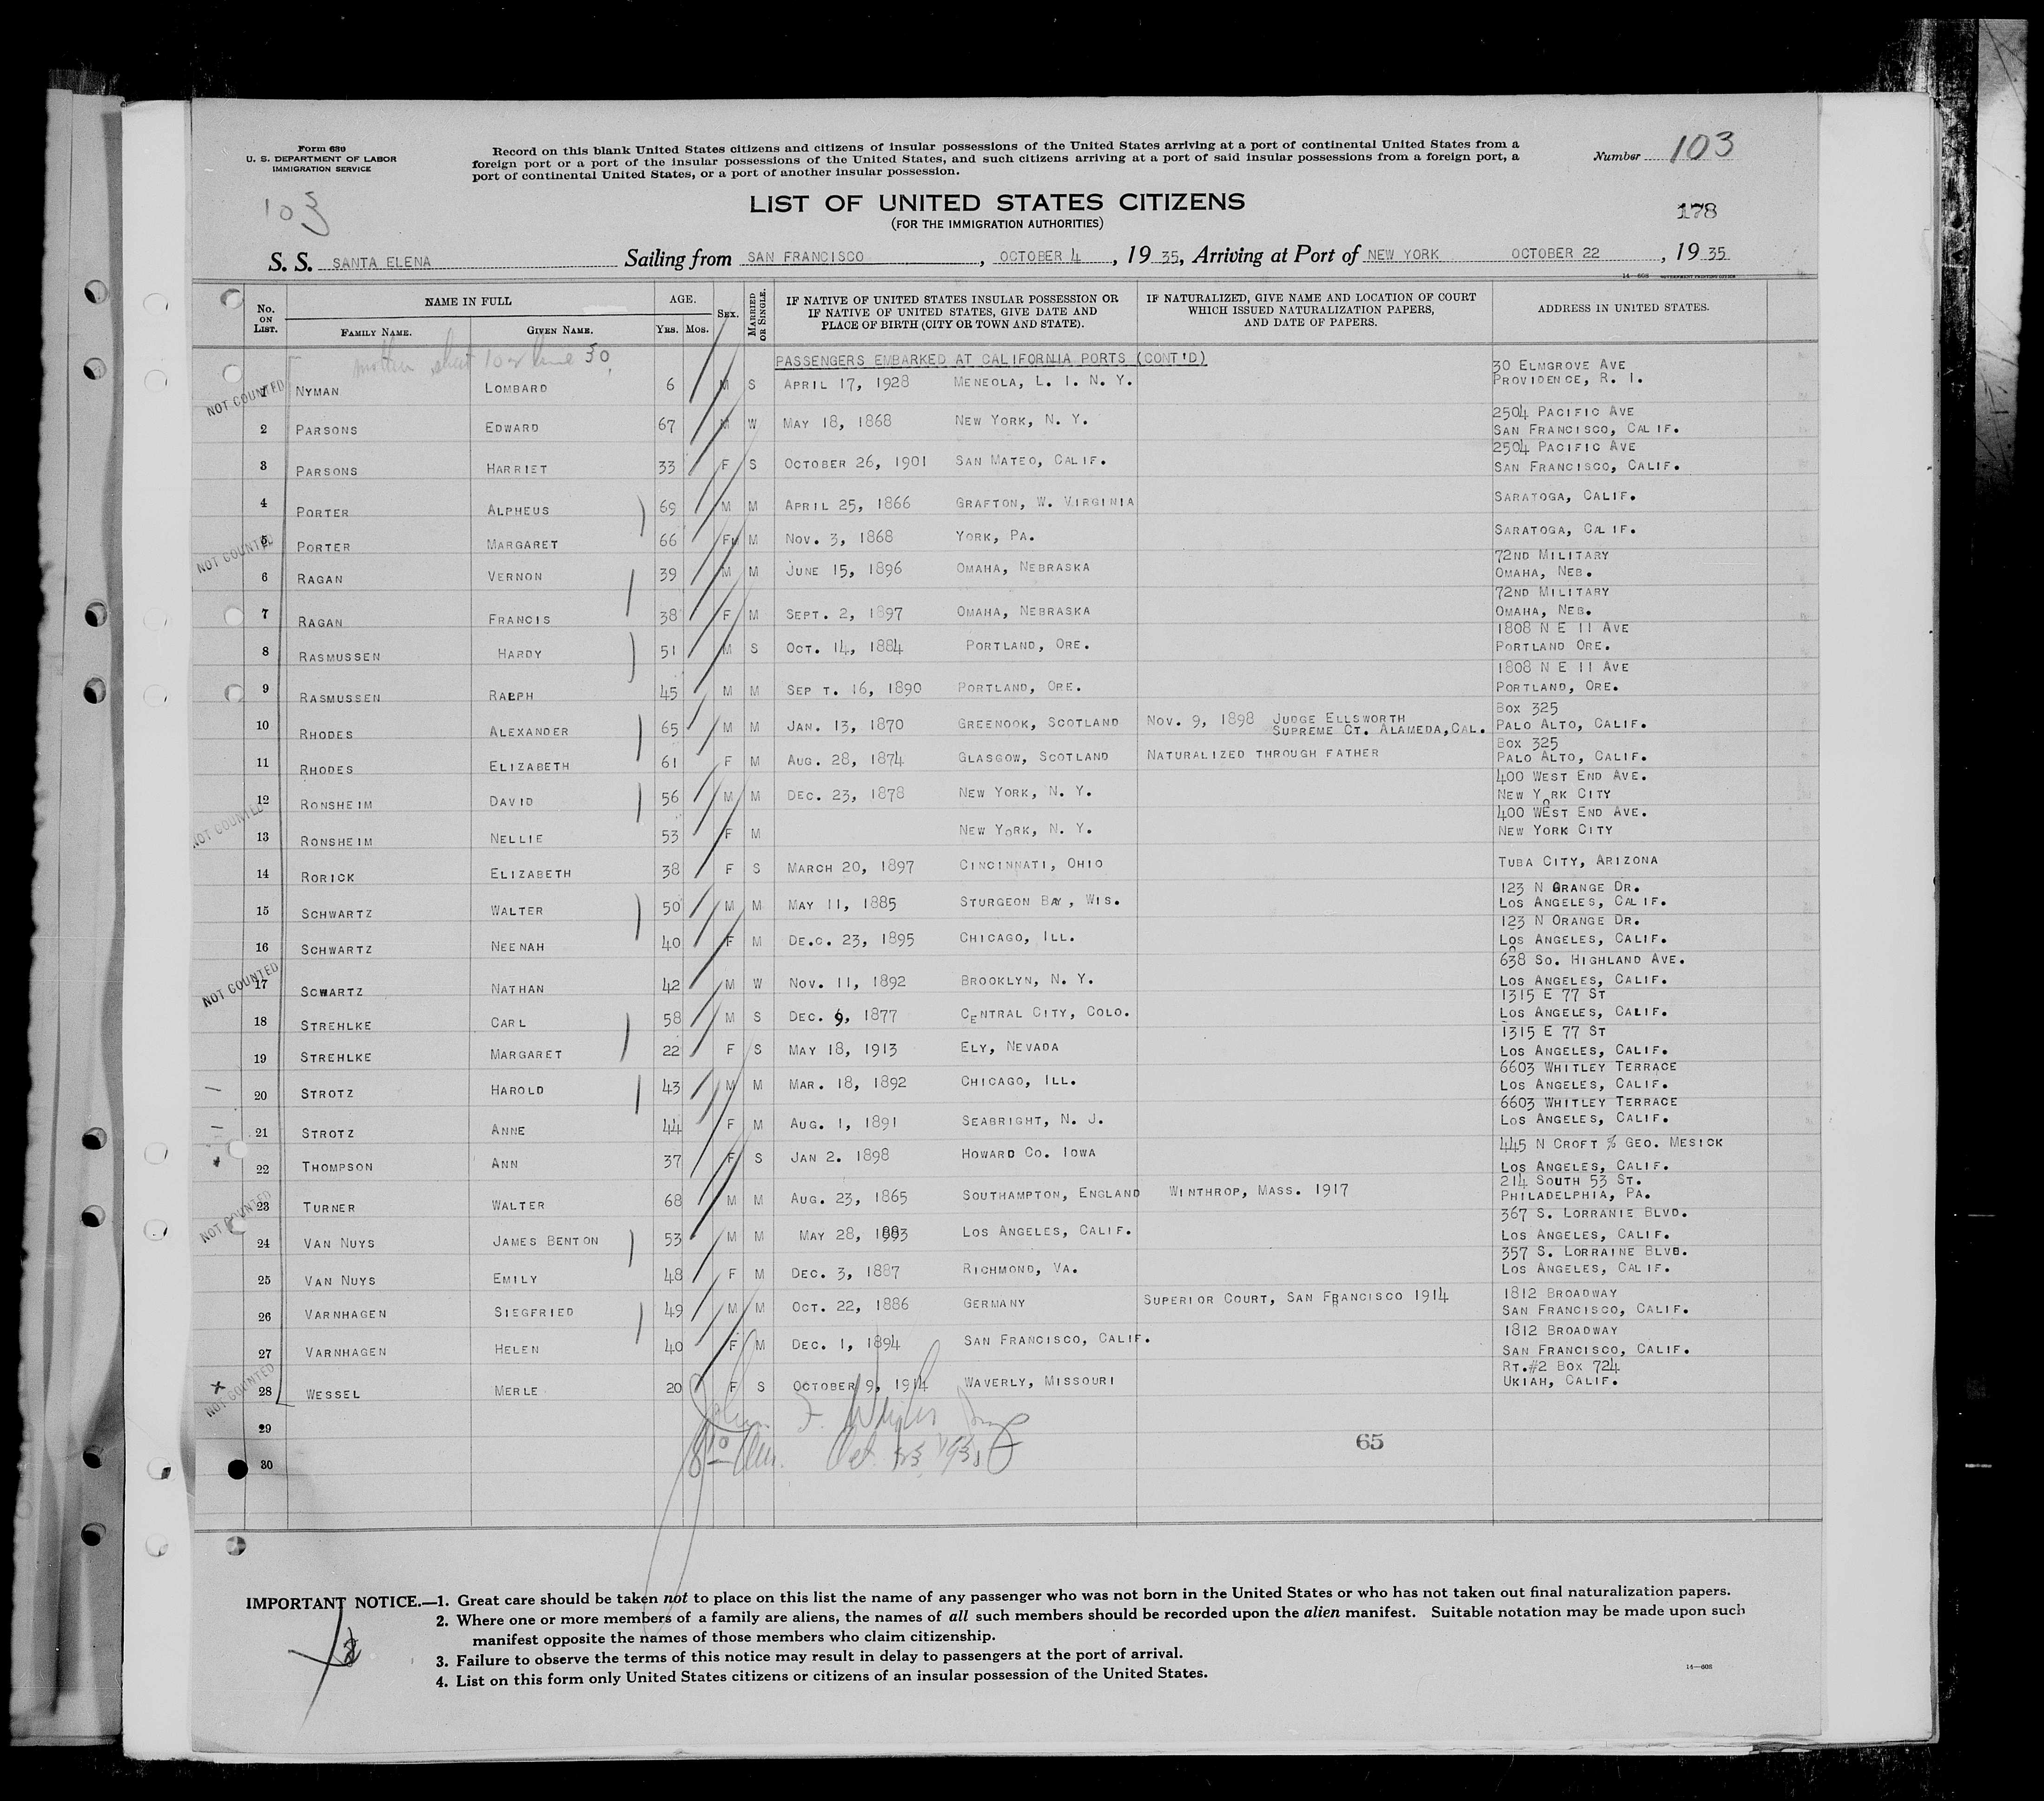 Form 630
U. S. DEPARTMENT OF LABOR
IMMIGRATION SERVICE
Record on this blank United States citizens and citizens of insular possessions of the United States arriving at a port of continental United States from a
foreign port or a port of the insular possessions of the United States, and such citizens arriving at a port of said insular possessions from a foreign port, a
port of continental United States, or a port of another insular possession.
Number 103
103
LIST OF UNITED STATES CITIZENS
(FOR THE IMMIGRATION AUTHORITIES)
178
S. S. SANTA ELENA Sailing from SAN FRANCISCO, OCTOBER 4, 19 35, Arriving at Port of NEW YORK OCTOBER 22, 19 35
No. ON LIST. NAME IN FULL FAMILY NAME. GIVEN NAME. AGE. YRS. MOS. SEX. MARRIED OR SINGLE. IF NATIVE OF UNITED STATES INSULAR POSSESSION OR IF NATIVE OF UNITED STATES, GIVE DATE AND PLACE OF BIRTH (CITY OR TOWN AND STATE). IF NATURALIZED, GIVE NAME AND LOCATION OF COURT WHICH ISSUED NATURALIZATION PAPERS, AND DATE OF PAPERS. ADDRESS IN UNITED STATES.
mother sheet 102 line 30
PASSENGERS EMBARKED AT CALIFORNIA PORTS (CONT'D)
NOT COUNTED
1 NYMAN LOMBARD 6 M S APRIL 17, 1928 MENEOLA, L. I. N. Y. 30 ELMGROVE AVE PROVIDENCE, R. I.
2 PARSONS EDWARD 67 M W MAY 18, 1868 NEW YORK, N. Y. 2504 PACIFIC AVE SAN FRANCISCO, CALIF.
3 PARSONS HARRIET 33 F S OCTOBER 26, 1901 SAN MATEO, CALIF. 2504 PACIFIC AVE SAN FRANCISCO, CALIF.
4 PORTER ALPHEUS 69 M M APRIL 25, 1866 GRAFTON, W. VIRGINIA SARATOGA, CALIF.
NOT COUNTED
5 PORTER MARGARET 66 F M NOV. 3, 1868 YORK, PA. SARATOGA, CALIF.
6 RAGAN VERNON 39 M M JUNE 15, 1896 OMAHA, NEBRASKA 72ND MILITARY OMAHA, NEB.
7 RAGAN FRANCIS 38 F M SEPT. 2, 1897 OMAHA, NEBRASKA 72ND MILITARY OMAHA, NEB.
8 RASMUSSEN HARDY 51 M S OCT. 14, 1884 PORTLAND, ORE. 1808 N E 11 AVE PORTLAND ORE.
9 RASMUSSEN RALPH 45 M M SEP T. 16, 1890 PORTLAND, ORE. 1808 N E 11 AVE PORTLAND, ORE.
10 RHODES ALEXANDER 65 M M JAN. 13, 1870 GREENOOK, SCOTLAND NOV. 9, 1898 JUDGE ELLSWORTH SUPREME CT. ALAMEDA, CAL. BOX 325 PALO ALTO, CALIF.
11 RHODES ELIZABETH 61 F M AUG. 28, 1874 GLASGOW, SCOTLAND NATURALIZED THROUGH FATHER BOX 325 PALO ALTO, CALIF.
12 RONSHEIM DAVID 56 M M DEC. 23, 1878 NEW YORK, N. Y. 400 WEST END AVE. NEW YORK CITY
NOT COUNTED
13 RONSHEIM NELLIE 53 F M NEW YORK, N. Y. 400 WEST END AVE. NEW YORK CITY
14 RORICK ELIZABETH 38 F S MARCH 20, 1897 CINCINNATI, OHIO TUBA CITY, ARIZONA
15 SCHWARTZ WALTER 50 M M MAY 11, 1885 STURGEON BAY, WIS. 123 N ORANGE DR. LOS ANGELES, CALIF.
16 SCHWARTZ NEENAH 40 F M DE.C. 23, 1895 CHICAGO, ILL. 123 N ORANGE DR. LOS ANGELES, CALIF.
NOT COUNTED
17 SCWARTZ NATHAN 42 M W NOV. 11, 1892 BROOKLYN, N. Y. 638 SO. HIGHLAND AVE. LOS ANGELES, CALIF.
18 STREHLKE CARL 58 M S DEC. 9, 1877 CENTRAL CITY, COLO. 1315 E 77 ST LOS ANGELES, CALIF.
19 STREHLKE MARGARET 22 F S MAY 18, 1913 ELY, NEVADA 1315 E 77 ST LOS ANGELES, CALIF.
20 STROTZ HAROLD 43 M M MAR. 18, 1892 CHICAGO, ILL. 6603 WHITLEY TERRACE LOS ANGELES, CALIF.
21 STROTZ ANNE 44 F M AUG. 1, 1891 SEABRIGHT, N. J. 6603 WHITLEY TERRACE LOS ANGELES, CALIF.
22 THOMPSON ANN 37 F S JAN 2. 1898 HOWARD CO. IOWA 445 N CROFT % GEO. MESICK LOS ANGELES, CALIF.
NOT COUNTED
23 TURNER WALTER 68 M M AUG. 23, 1865 SOUTHAMPTON, ENGLAND WINTHROP, MASS. 1917 214 SOUTH 53 ST. PHILADELPHIA, PA.
24 VAN NUYS JAMES BENTON 53 M M MAY 28, 1883 LOS ANGELES, CALIF. 367 S. LORRANIE BLVD. LOS ANGELES, CALIF.
25 VAN NUYS EMILY 48 F M DEC. 3, 1887 RICHMOND, VA. 357 S. LORRAINE BLVD. LOS ANGELES, CALIF.
26 VARNHAGEN SIEGFRIED 49 M M OCT. 22, 1886 GERMANY SUPERIOR COURT, SAN FRANCISCO 1914 1812 BROADWAY SAN FRANCISCO, CALIF.
27 VARNHAGEN HELEN 40 F M DEC. 1, 1894 SAN FRANCISCO, CALIF. 1812 BROADWAY SAN FRANCISCO, CALIF.
NOT COUNTED
28 WESSEL MERLE 20 F S OCTOBER 9, 1914 WAVERLY, MISSOURI RT.#2 BOX 724 UKIAH, CALIF.
29
30
65
IMPORTANT NOTICE.—1. Great care should be taken not to place on this list the name of any passenger who was not born in the United States or who has not taken out final naturalization papers.
2. Where one or more members of a family are aliens, the names of all such members should be recorded upon the alien manifest. Suitable notation may be made upon such
manifest opposite the names of those members who claim citizenship.
3. Failure to observe the terms of this notice may result in delay to passengers at the port of arrival.
4. List on this form only United States citizens or citizens of an insular possession of the United States.
14—608